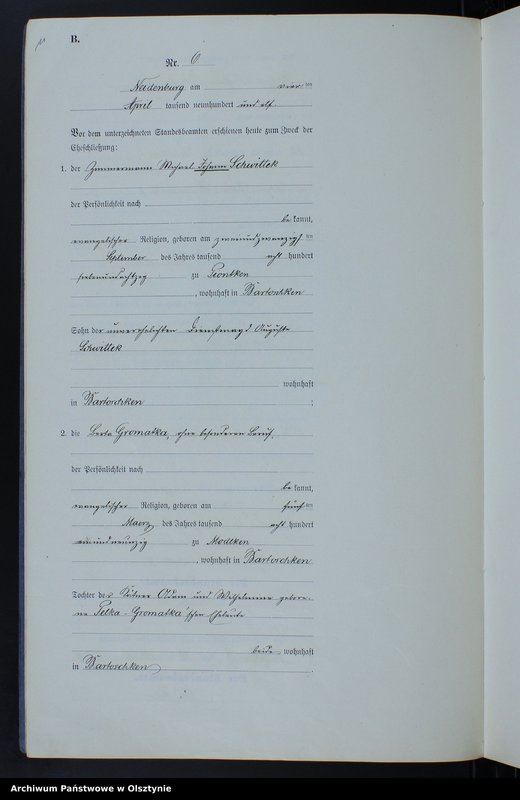 B.
Nr. 6
Neidenburg am vier ten
April tausend neunhundert und elf
Vor dem unterzeichneten Standesbeamten erschienen heute zum Zweck der
Eheschließung:
1. der Zimmermann Michael Johann Schwittek
der Persönlichkeit nach
be kannt,
evangelischer Religion, geboren am zweiundzwanzigs ten
September des Jahres tausend acht hundert
siebenundachtzig zu Piontken
, wohnhaft in Bartoschken
Sohn der unverehelichten Dienstmagd Auguste
Schwittek
wohnhaft
in Bartoschken ;
2. die Berta Gromatka, ohne besonderen Beruf,
der Persönlichkeit nach
be kannt,
evangelischer Religion, geboren am fünf ten
Maerz des Jahres tausend acht hundert
einundneunzig zu Modlken
, wohnhaft in Bartoschken
Tochter der Kätner Adam und Wilhelmine gebore-
ne Pelka-Gromatka'schen Eheleute
beide wohnhaft
in Bartoschken .
Archiwum Państwowe w Olsztynie